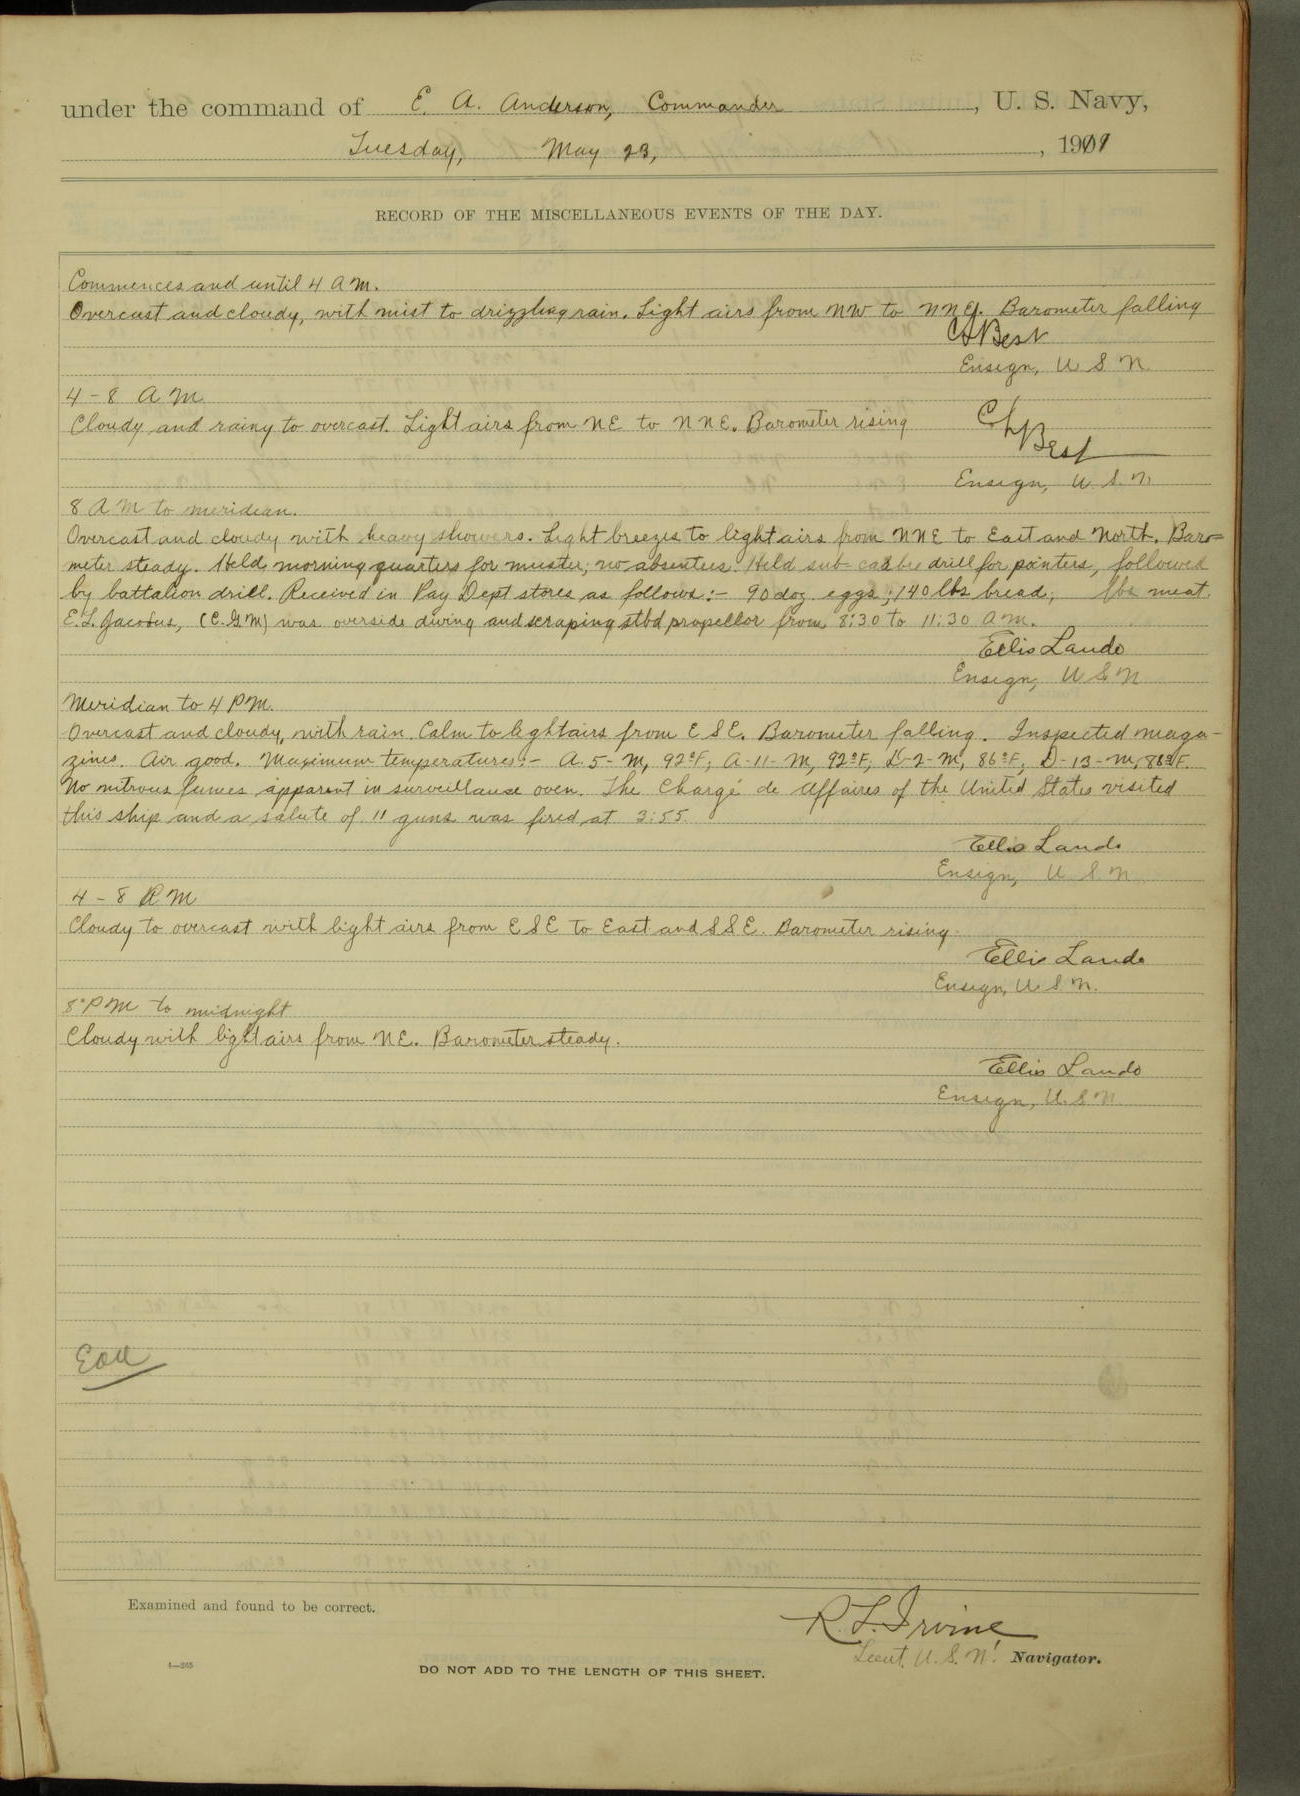 under the command of E. A. Anderson, Commander, U. S. Navy,
Tuesday, May 23, 1911
RECORD OF THE MISCELLANEOUS EVENTS OF THE DAY.
Commences and until 4 A M.
Overcast and cloudy, with mist to drizzling rain. Light airs from NW to NNE. Barometer falling
C H Best
Ensign, U S N.
4 - 8 A M.
Cloudy and rainy to overcast. Light airs from NE to NNE. Barometer rising
C H Best
Ensign, U. S. N.
8 A M to meridian.
Overcast and cloudy with heavy showers. Light breezes to light airs from NNE to East and North. Baro-
meter steady. Held morning quarters for muster; no absentees. Held sub-calibre drill for pointers, followed
by battalion drill. Received in Pay Dept stores as follows:- 90 doz. eggs; 140 lbs bread; lbs meat.
E. L. Jacobus, (C.G.M) was overside diving and scraping stbd propellor from 8:30 to 11:30 A M.
Ellis Lando
Ensign, U S N
Meridian to 4 P M.
Overcast and cloudy, with rain. Calm to light airs from E S E. Barometer falling. Inspected maga-
zines. Air good. Maximum temperatures:- A-5-M, 92°F; A-11-M, 92°F; D-2-M, 86°F; D-13-M, 88°F.
No nitrous fumes apparent in surveillance oven. The Chargé de Affaires of the United States visited
this ship and a salute of 11 guns was fired at 3:55.
Ellis Lando
Ensign, U S N
4 - 8 P M
Cloudy to overcast with light airs from E S E to East and S S E. Barometer rising.
Ellis Lando
Ensign, U S N.
8 P M to midnight
Cloudy with light airs from NE. Barometer steady.
Ellis Lando
Ensign, U. S N.
Examined and found to be correct.
R. L. Irvine
Lieut. U. S. N. Navigator.
4—265
DO NOT ADD TO THE LENGTH OF THIS SHEET.